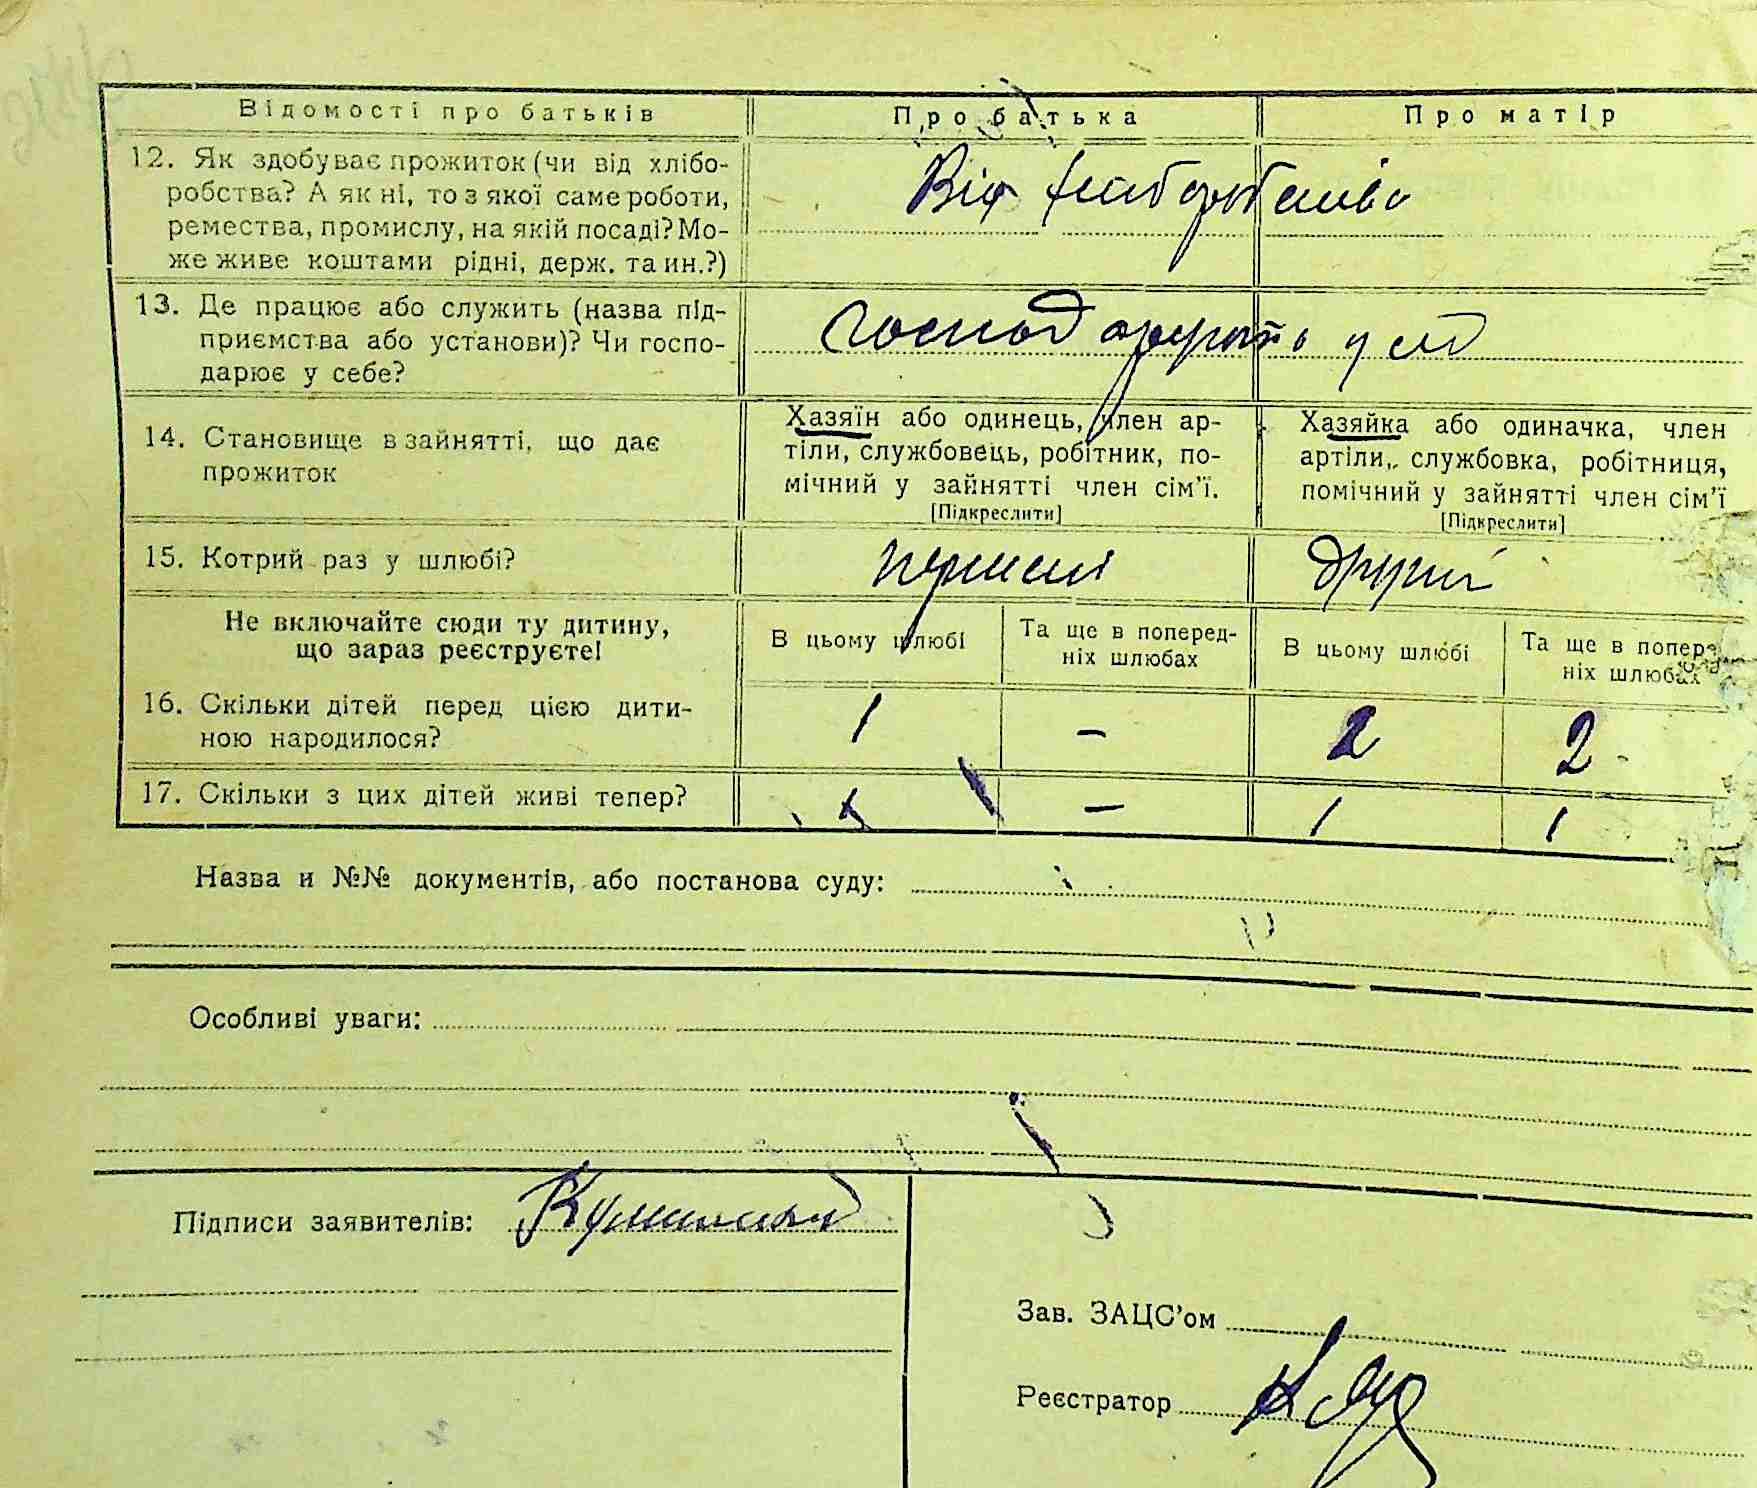 Відомості про батьків
Про батька
Про матір
12. Як здобуває прожиток (чи від хлібо-
робства? А як ні, то з якої саме роботи,
ремества, промислу, на якій посаді? Мо-
же живе коштами рідні, держ. та ин.?)
Від хліборобства
13. Де працює або служить (назва під-
приємства або установи)? Чи госпо-
дарює у себе?
господарують у себе
14. Становище в зайнятті, що дає
прожиток
Хазяїн або одинець, член ар-
тіли, службовець, робітник, по-
мічний у зайнятті член сім'ї.
[Підкреслити]
Хазяйка або одиначка, член
артіли, службовка, робітниця,
помічний у зайнятті член сім'ї
[Підкреслити]
15. Котрий раз у шлюбі?
перший
другий
Не включайте сюди ту дитину,
що зараз реєструєте!
В цьому шлюбі
Та ще в поперед-
ніх шлюбах
В цьому шлюбі
Та ще в попер
ніх шлюбах
16. Скільки дітей перед цією дити-
ною народилося?
1
-
2
2
17. Скільки з цих дітей живі тепер?
1
-
1
1
Назва и №№ документів, або постанова суду:
Особливі уваги:
Підписи заявителів:
Зав. ЗАЦС'ом
Реєстратор